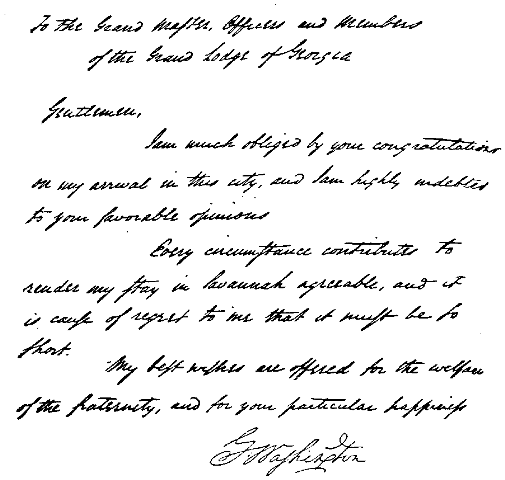 To the Grand Master, Officers and Members
of the Grand Lodge of Georgia
Gentlemen,
I am much obliged by your congratulations
on my arrival in this city, and I am highly indebted
to your favorable opinions
Every circumstance contributes to
render my stay in Savannah agreeable, and it
is cause of regret to me that it must be so
short.
My best wishes are offered for the welfare
of the fraternity, and for your particular happiness
G Washington